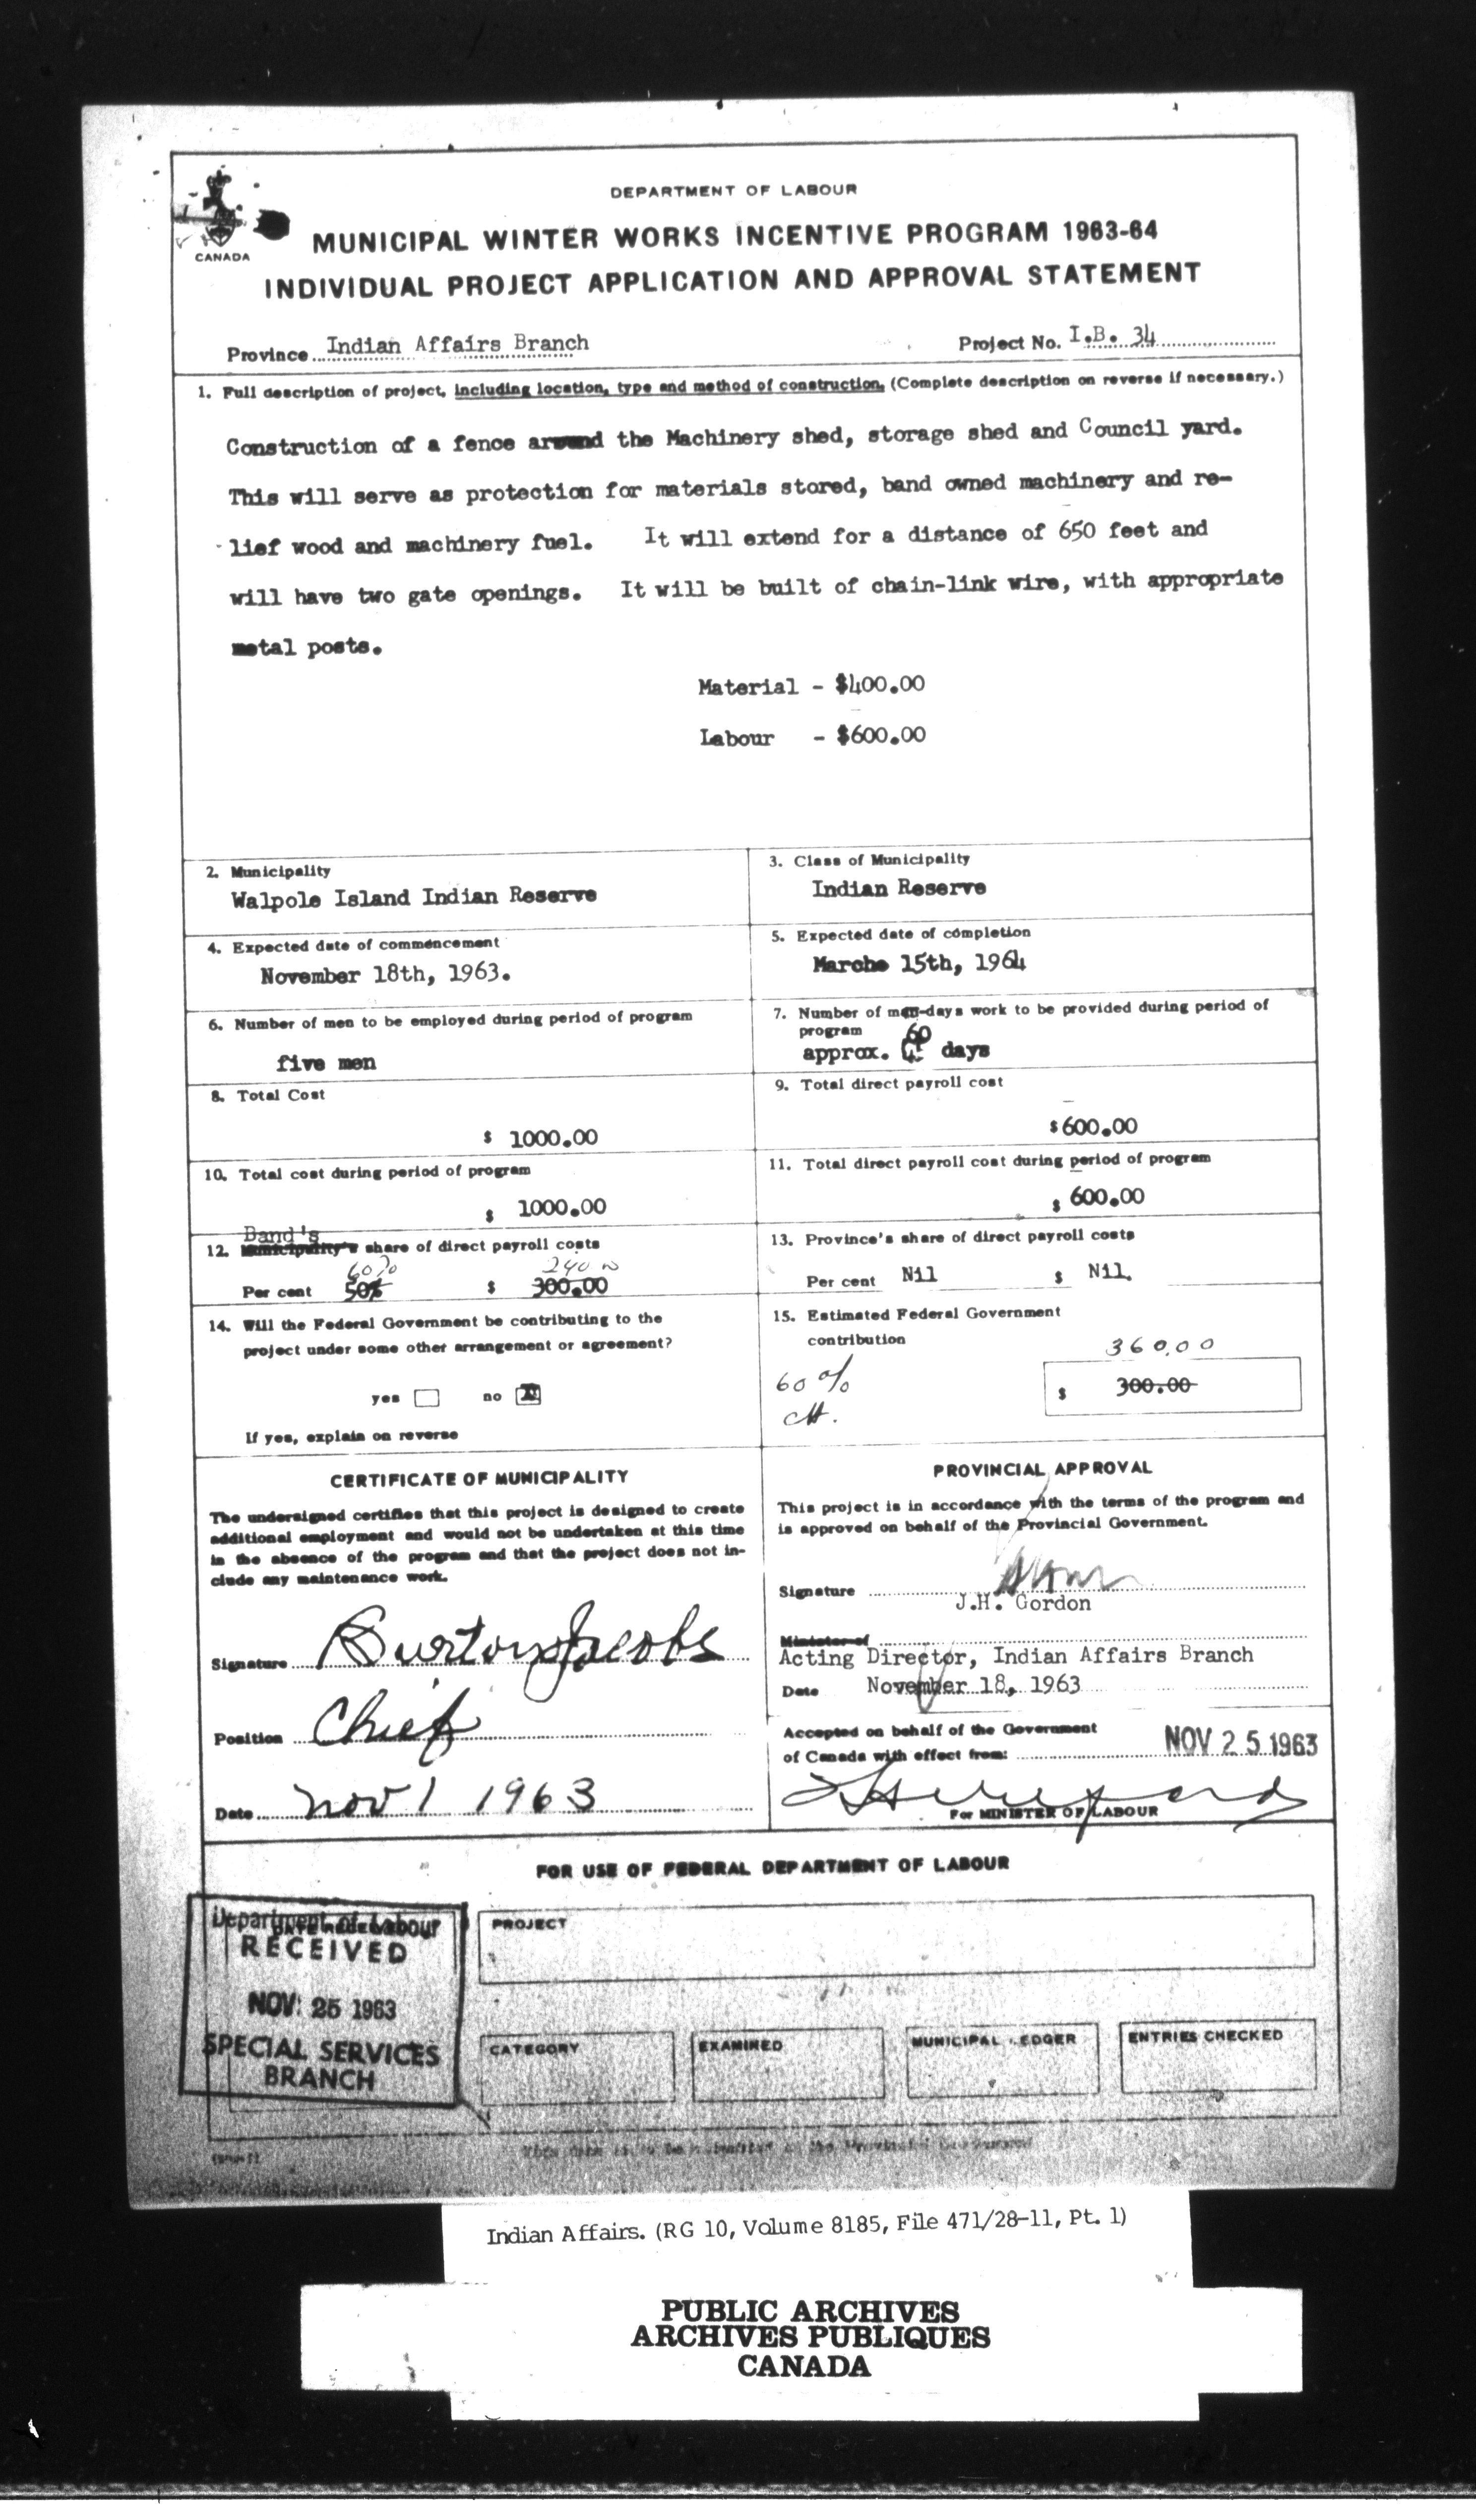 DEPARTMENT OF LABOUR
CANADA
MUNICIPAL WINTER WORKS INCENTIVE PROGRAM 1963-64
INDIVIDUAL PROJECT APPLICATION AND APPROVAL STATEMENT
Province Indian Affairs Branch
Project No. I.B. 34
1. Full description of project, including location, type and method of construction. (Complete description on reverse if necessary.)
Construction of a fence around the Machinery shed, storage shed and Council yard.
This will serve as protection for materials stored, band owned machinery and re-
lief wood and machinery fuel. It will extend for a distance of 650 feet and
will have two gate openings. It will be built of chain-link wire, with appropriate
metal posts.
Material - $400.00
Labour - $600.00
2. Municipality
Walpole Island Indian Reserve
3. Class of Municipality
Indian Reserve
4. Expected date of commencement
November 18th, 1963.
5. Expected date of completion
Marche 15th, 1964
6. Number of men to be employed during period of program
five men
7. Number of man-days work to be provided during period of
program
approx. 60 days
8. Total Cost
$ 1000.00
9. Total direct payroll cost
$ 600.00
10. Total cost during period of program
$ 1000.00
11. Total direct payroll cost during period of program
$ 600.00
Band's
12. Municipality's share of direct payroll costs
60% 240 00
Per cent 50% $ 300.00
13. Province's share of direct payroll costs
Per cent Nil $ Nil.
14. Will the Federal Government be contributing to the
project under some other arrangement or agreement?
yes no X
If yes, explain on reverse
15. Estimated Federal Government
contribution
360.00
60 %
$ 300.00
CERTIFICATE OF MUNICIPALITY
The undersigned certifies that this project is designed to create
additional employment and would not be undertaken at this time
in the absence of the program and that the project does not in-
clude any maintenance work.
Signature Burton Jacobs
Position Chief
Date Nov 1 1963
PROVINCIAL APPROVAL
This project is in accordance with the terms of the program and
is approved on behalf of the Provincial Government.
Signature
J.H. Gordon
Minister of
Acting Director, Indian Affairs Branch
Date November 18, 1963
Accepted on behalf of the Government
of Canada with effect from: NOV 25 1963
For MINISTER OF LABOUR
FOR USE OF FEDERAL DEPARTMENT OF LABOUR
Department of Labour
DATE RECEIVED
RECEIVED
NOV 25 1963
SPECIAL SERVICES
BRANCH
PROJECT
CATEGORY
EXAMINED
MUNICIPAL LEDGER
ENTRIES CHECKED
Indian Affairs. (RG 10, Volume 8185, File 471/28-11, Pt. 1)
PUBLIC ARCHIVES
ARCHIVES PUBLIQUES
CANADA